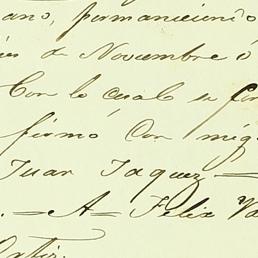 ano, permaneciendo
de Noviembre ó
Con lo cual se
firmó Con migo
Juan Jaquez —
. — A — Felix Va
Ortiz.